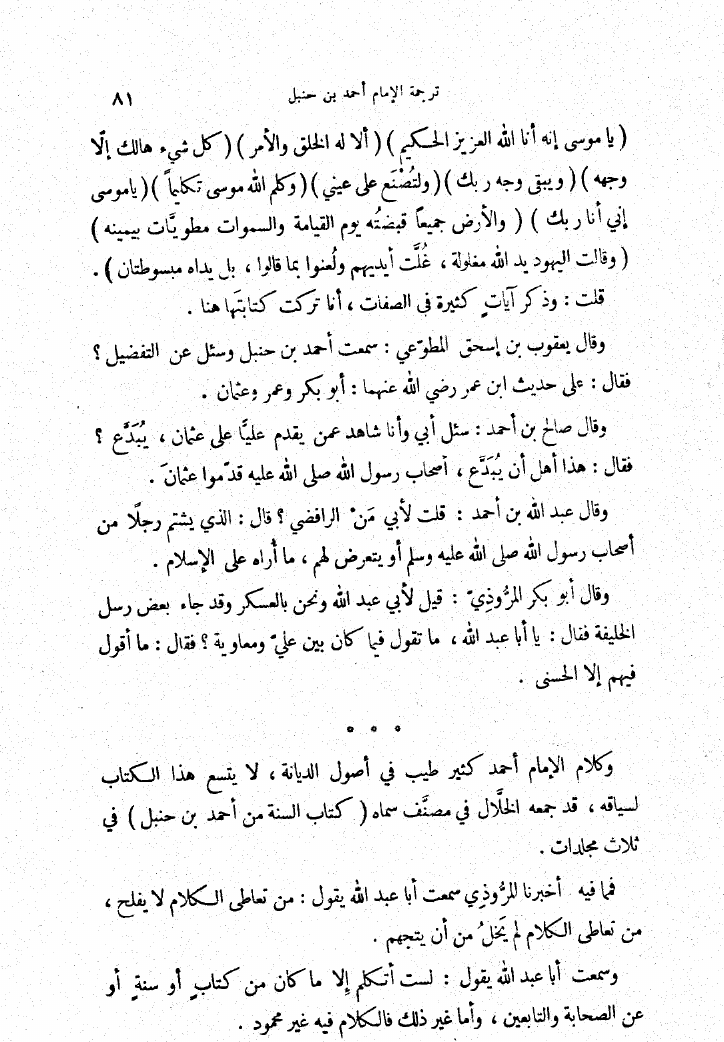 ترجمة الإمام أحمد بن حنبل ٨١
( يا موسى إنه أنا الله العزيز الحكيم ) ( ألا له الخلق والأمر ) ( كل شيء هالك إلّا
وجهه ) ( ويبقى وجه ربك ) ( ولتُصْنَع على عيني ) ( وكلم الله موسى تكليماً ) ( ياموسى
إني أنا ربك ) ( والأرض جميعاً قبضتُه يوم القيامة والسموات مطويَّات بيمينه )
( وقالت اليهود يد الله مغلولة ، غُلَّت أيديهم ولُعنوا بما قالوا ، بل يداه مبسوطتان ) .
قلت : وذكر آياتٍ كثيرة في الصفات ، أنا تركت كتابتَها هنا .
وقال يعقوب بن إسحق المطوّعي : سمعت أحمد بن حنبل وسئل عن التفضيل ؟
فقال : على حديث ابن عمر رضي الله عنهما : أبو بكر وعمر وعثمان .
وقال صالح بن أحمد : سئل أبي وأنا شاهد عمن يقدم عليًّا على عثمان ، يُبَدَّع ؟
فقال : هذا أهل أن يُبَدَّع ، أصحاب رسول الله صلى الله عليه قدّموا عثمانَ .
وقال عبد الله بن أحمد : قلت لأبي مَنْ الرافضي ؟ قال : الذي يشتم رجلًا من
أصحاب رسول الله صلى الله عليه وسلم أو يتعرض لهم ، ما أُراه على الإسلام .
وقال أبو بكر المرُّوذِيّ : قيل لأبي عبد الله ونحن بالعسكر وقد جاء بعض رسل
الخليفة فقال : يا أبا عبد الله ، ما تقول فيما كان بين عليّ ومعاوية ؟ فقال : ما أقول
فيهم إلا الحسنى .
* * *
وكلام الإمام أحمد كثير طيب في أصول الديانة ، لا يتسع هذا الكتاب
لسياقه ، قد جمعه الخلَّال في مصنَّف سماه ( كتاب السنة من أحمد بن حنبل ) في
ثلاث مجلدات .
فما فيه أخبرنا المرُّوذي سمعت أبا عبد الله يقول : من تعاطى الكلام لا يفلح ،
من تعاطى الكلام لم يَخلُ من أن يتجهم .
وسمعت أبا عبد الله يقول : لست أتكلم إلا ما كان من كتابٍ أو سنةٍ أو
عن الصحابة والتابعين ، وأما غير ذلك فالكلام فيه غير محمود .